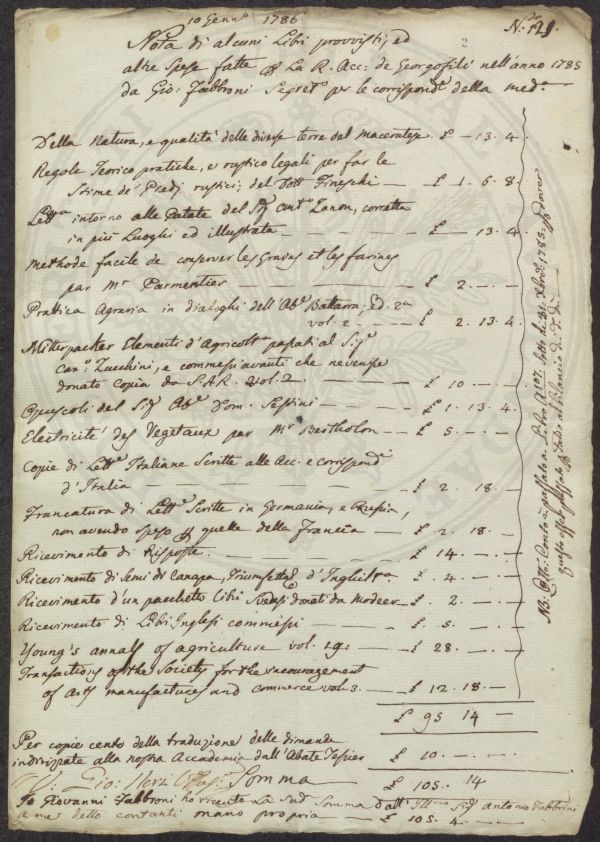 10 Genn.° 1786
N.° 121.
Nota di alcuni Libi provvisti, ed
altre Spese fatte p La R. Acc: de Georgofili nell'anno 1785
da Gio: Fabbroni Segret.° per le corrispond.e della med.a
Della Natura, e qualità delle diverse terre dal maceratese £ — 13. 4.
Regole Teorico pratiche, e rustico legali per far le
Stime de' Predj rustici; del Dott Fineschi — £ 1. 6. 8.
Lett.a intorno alle Patate del Sig.r Ant.° Zanon, corretta
in più Luoghi ed illustrata — £ — 13. 4
Methode facile de conserver les Grains et les farines
par M.r Parmentier — £ 2. — —
Prattica Agraria in dialoghi dell'Ab.e Battarra, ed. 2.a
vol. 2 — £ 2. 13. 4
Mitterpacher Elementi d'Agricolt.a passati al Sig.r
Can.° Zucchini, e commessi avanti che ne venisse
donato Copia da S.A.R. vol. 2. — £ 10 — —
Opuscoli del Sig.r Ab.e Dom. Sestini — £ 1. 13. 4
Electricité des Vegetaux par M.r Bertholon — £ 5. — —
Copie di Lett.e Italiane Scritte alle Acc. e corrispond.i
d'Italia — £ 2. 18. —
Francatura di Lett.e Scritte in Germania, e Prussia,
non avendo speso p quelle della Francia — £ 2. 18. —
Ricevimento di Risposte — £ 14. — —
Ricevimento di Semi di Canapa, d'Inghilt.a — £ 4. — —
Ricevimento d'un pacchetto Libi Svedesi donati da Modeer — £ 2. — —
Ricevimento di Libi Inglesi commessi — £ 5. — —
Young's annals of agriculture vol. — £ 28. — —
Transactions of the Society for the incouragement
of Arts manufactures and commerce vol. 3. — £ 12. 18. —
£ 95 14 —
Per copie cento della traduzione delle dimande
indirizzate alla nostra Accademia dall'Abate Tessier — £ 10. — —
Somma — £ 105. 14
Io Giovanni Fabbroni ho ricevuto La Sud.a Somma dall' Illmo Sig.r Antonio Fabbrini
a me detto contanti mano propria — £ 105. 4. —